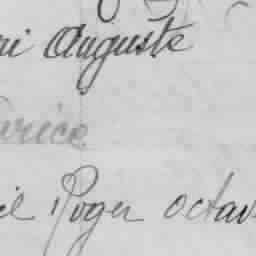 ri Auguste
urice
il Roger Octav